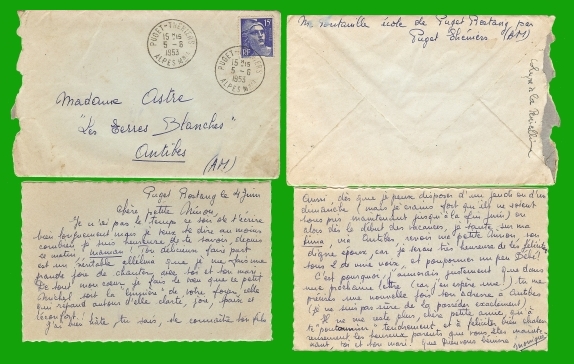 PUGET-THÉNIERS
15 H15
5 - 6
1953
ALPES Mmes
PUGET-THÉNIERS
15 H15
5 - 6
1953
ALPES Mmes
15F
RF
Madame Astre
"Les Terres Blanches"
Antibes
(AM)
école de Puget Rostang par
Puget Théniers (AM)
Puget Rostang le 4 Juin
chère petite Ninon,
Je n'ai pas le temps ce soir de t'écrire
bien longuement mais je veux te dire au moins
combien je suis heureuse de te savoir depuis
ce matin, maman! Ton délicieux faire part
est un véritable alleluia que je me fais une
grande joie de chanter avec toi et ton mari.
De tout mon cœur je fais le vœu que ce petit
soit la lumière de votre foyer, celle
qui répand autour d'elle clarté, joie, paix et
réconfort!
J'ai bien hâte, tu sais, de connaître ton fils
Aussi, dès que je peux disposer d'un jeudi ou d'un
dimanche (mais je crains fort qu'ils ne soient
tous pris maintenant jusqu'à la fin juin) ou
alors dès le début des vacances, je saute sur ma
via Antibes revoir ma petite Ninon son
digne époux car je serai très heureuse de les féliciter
tous 2 de vive voix, et pouponner un peu Bébé!
C'est pourquoi j'aimerais justement que dans
une prochaine lettre (car j'en espère une!) tu me
donnes une nouvelle fois ton adresse à Antibes
(je ne suis pas sûre de la posséder exactement).
Il ne me reste plus, chère petite amie, qu'à
tendrement et à féliciter bien chaleu-
reusement les heureux parents que vous êtes mainte-
nant, toi et ton mari.
Monique